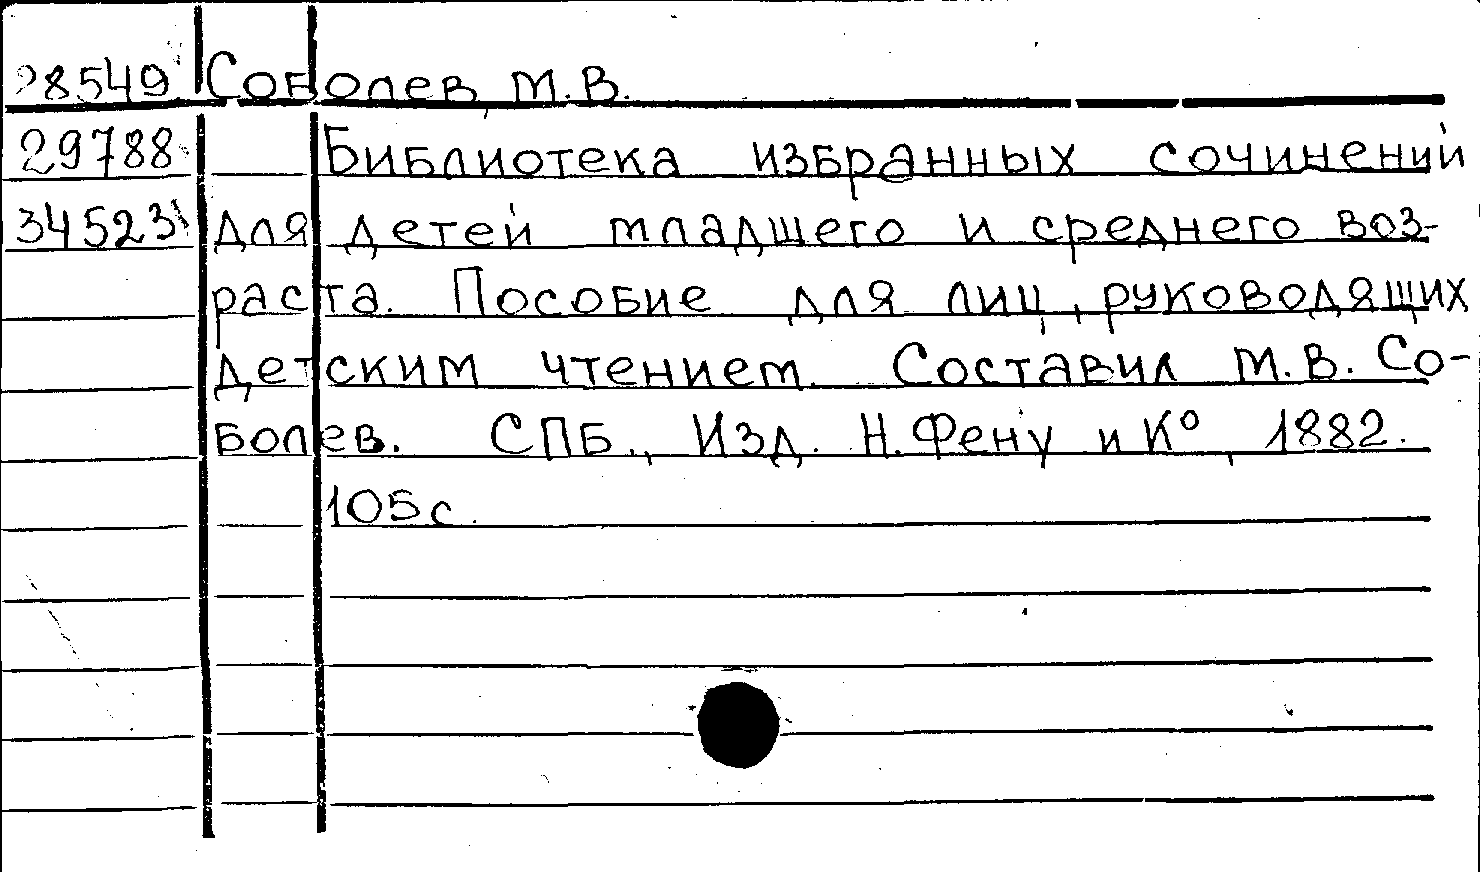 28549 Соболев, М.В.
29788 Библиотека избранных сочинений
34523 для детей младшего и среднего воз-
раста. Пособие для лиц, руководящих
детским чтением. Составил М.В. Со-
болев. СПБ., Изд. Н. Фену и К°, 1882.
105 с.